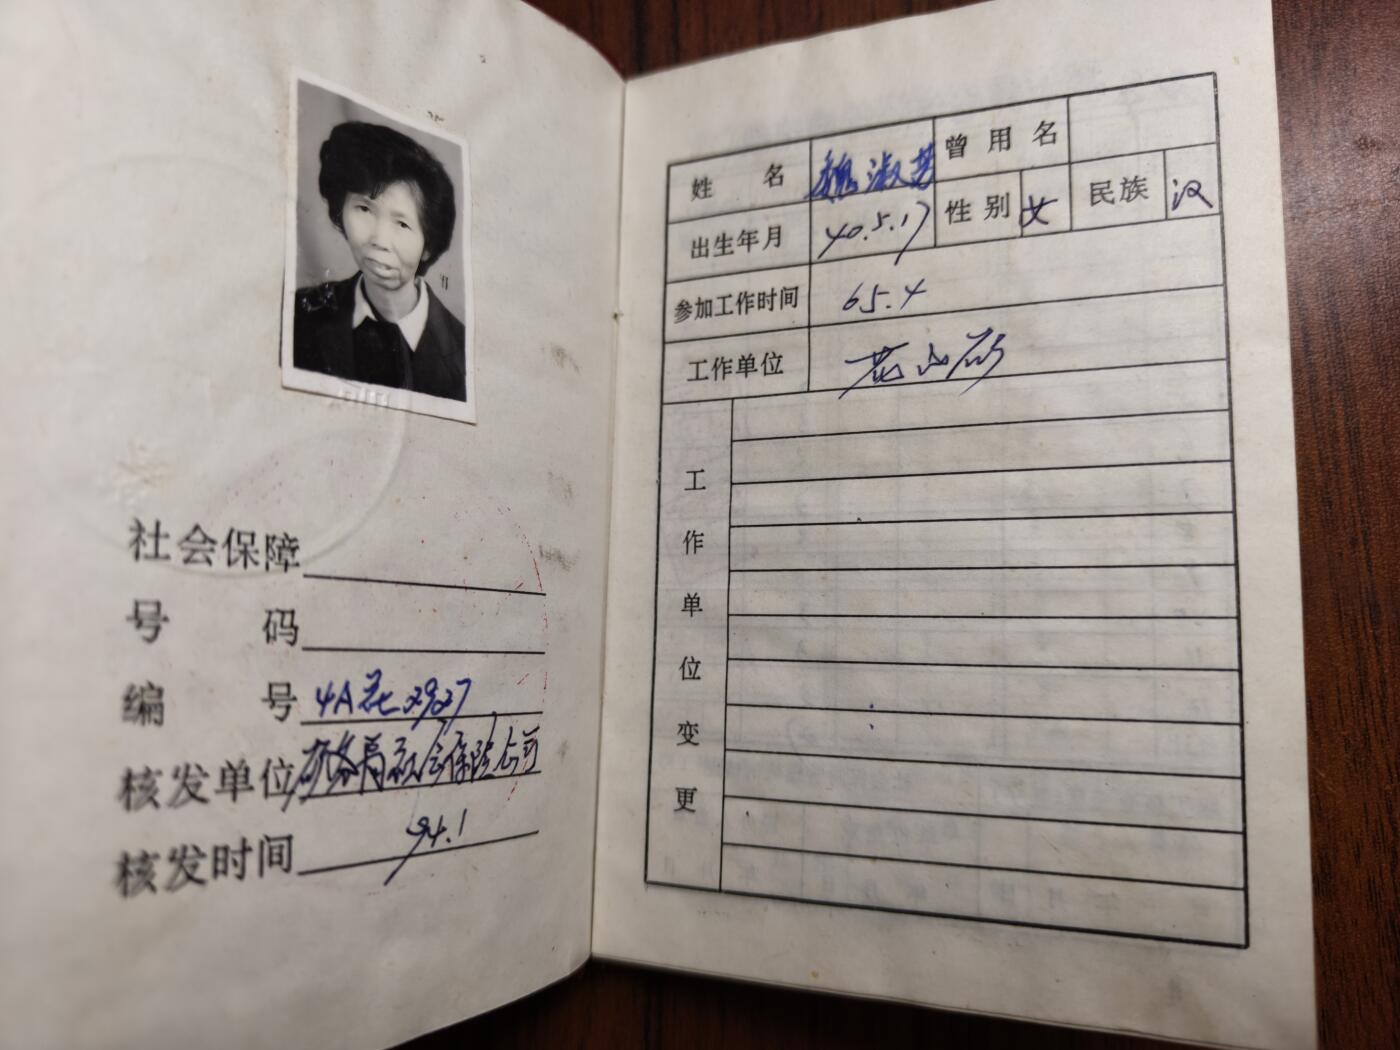 社会保障
号 码
编 号 4A花2927
核发单位 矿务局社会保险公司
核发时间 94.1
姓 名 魏淑芳 曾用名
出生年月 40.5.17 性别 女 民族 汉
参加工作时间 65.4
工作单位 花山矿
工作单位变更